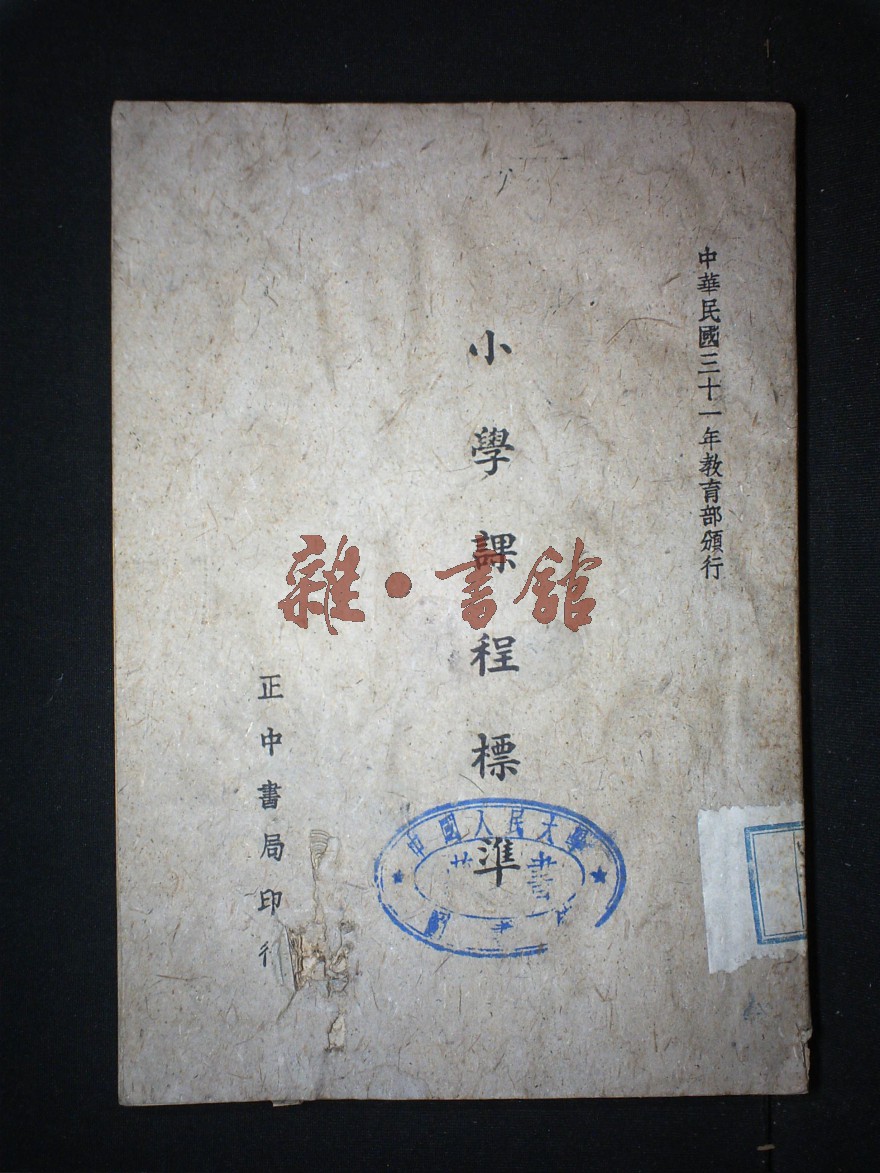 中華民國三十一年教育部頒行
小學課程標準
正中書局印行
雜·書館
中國人民大學